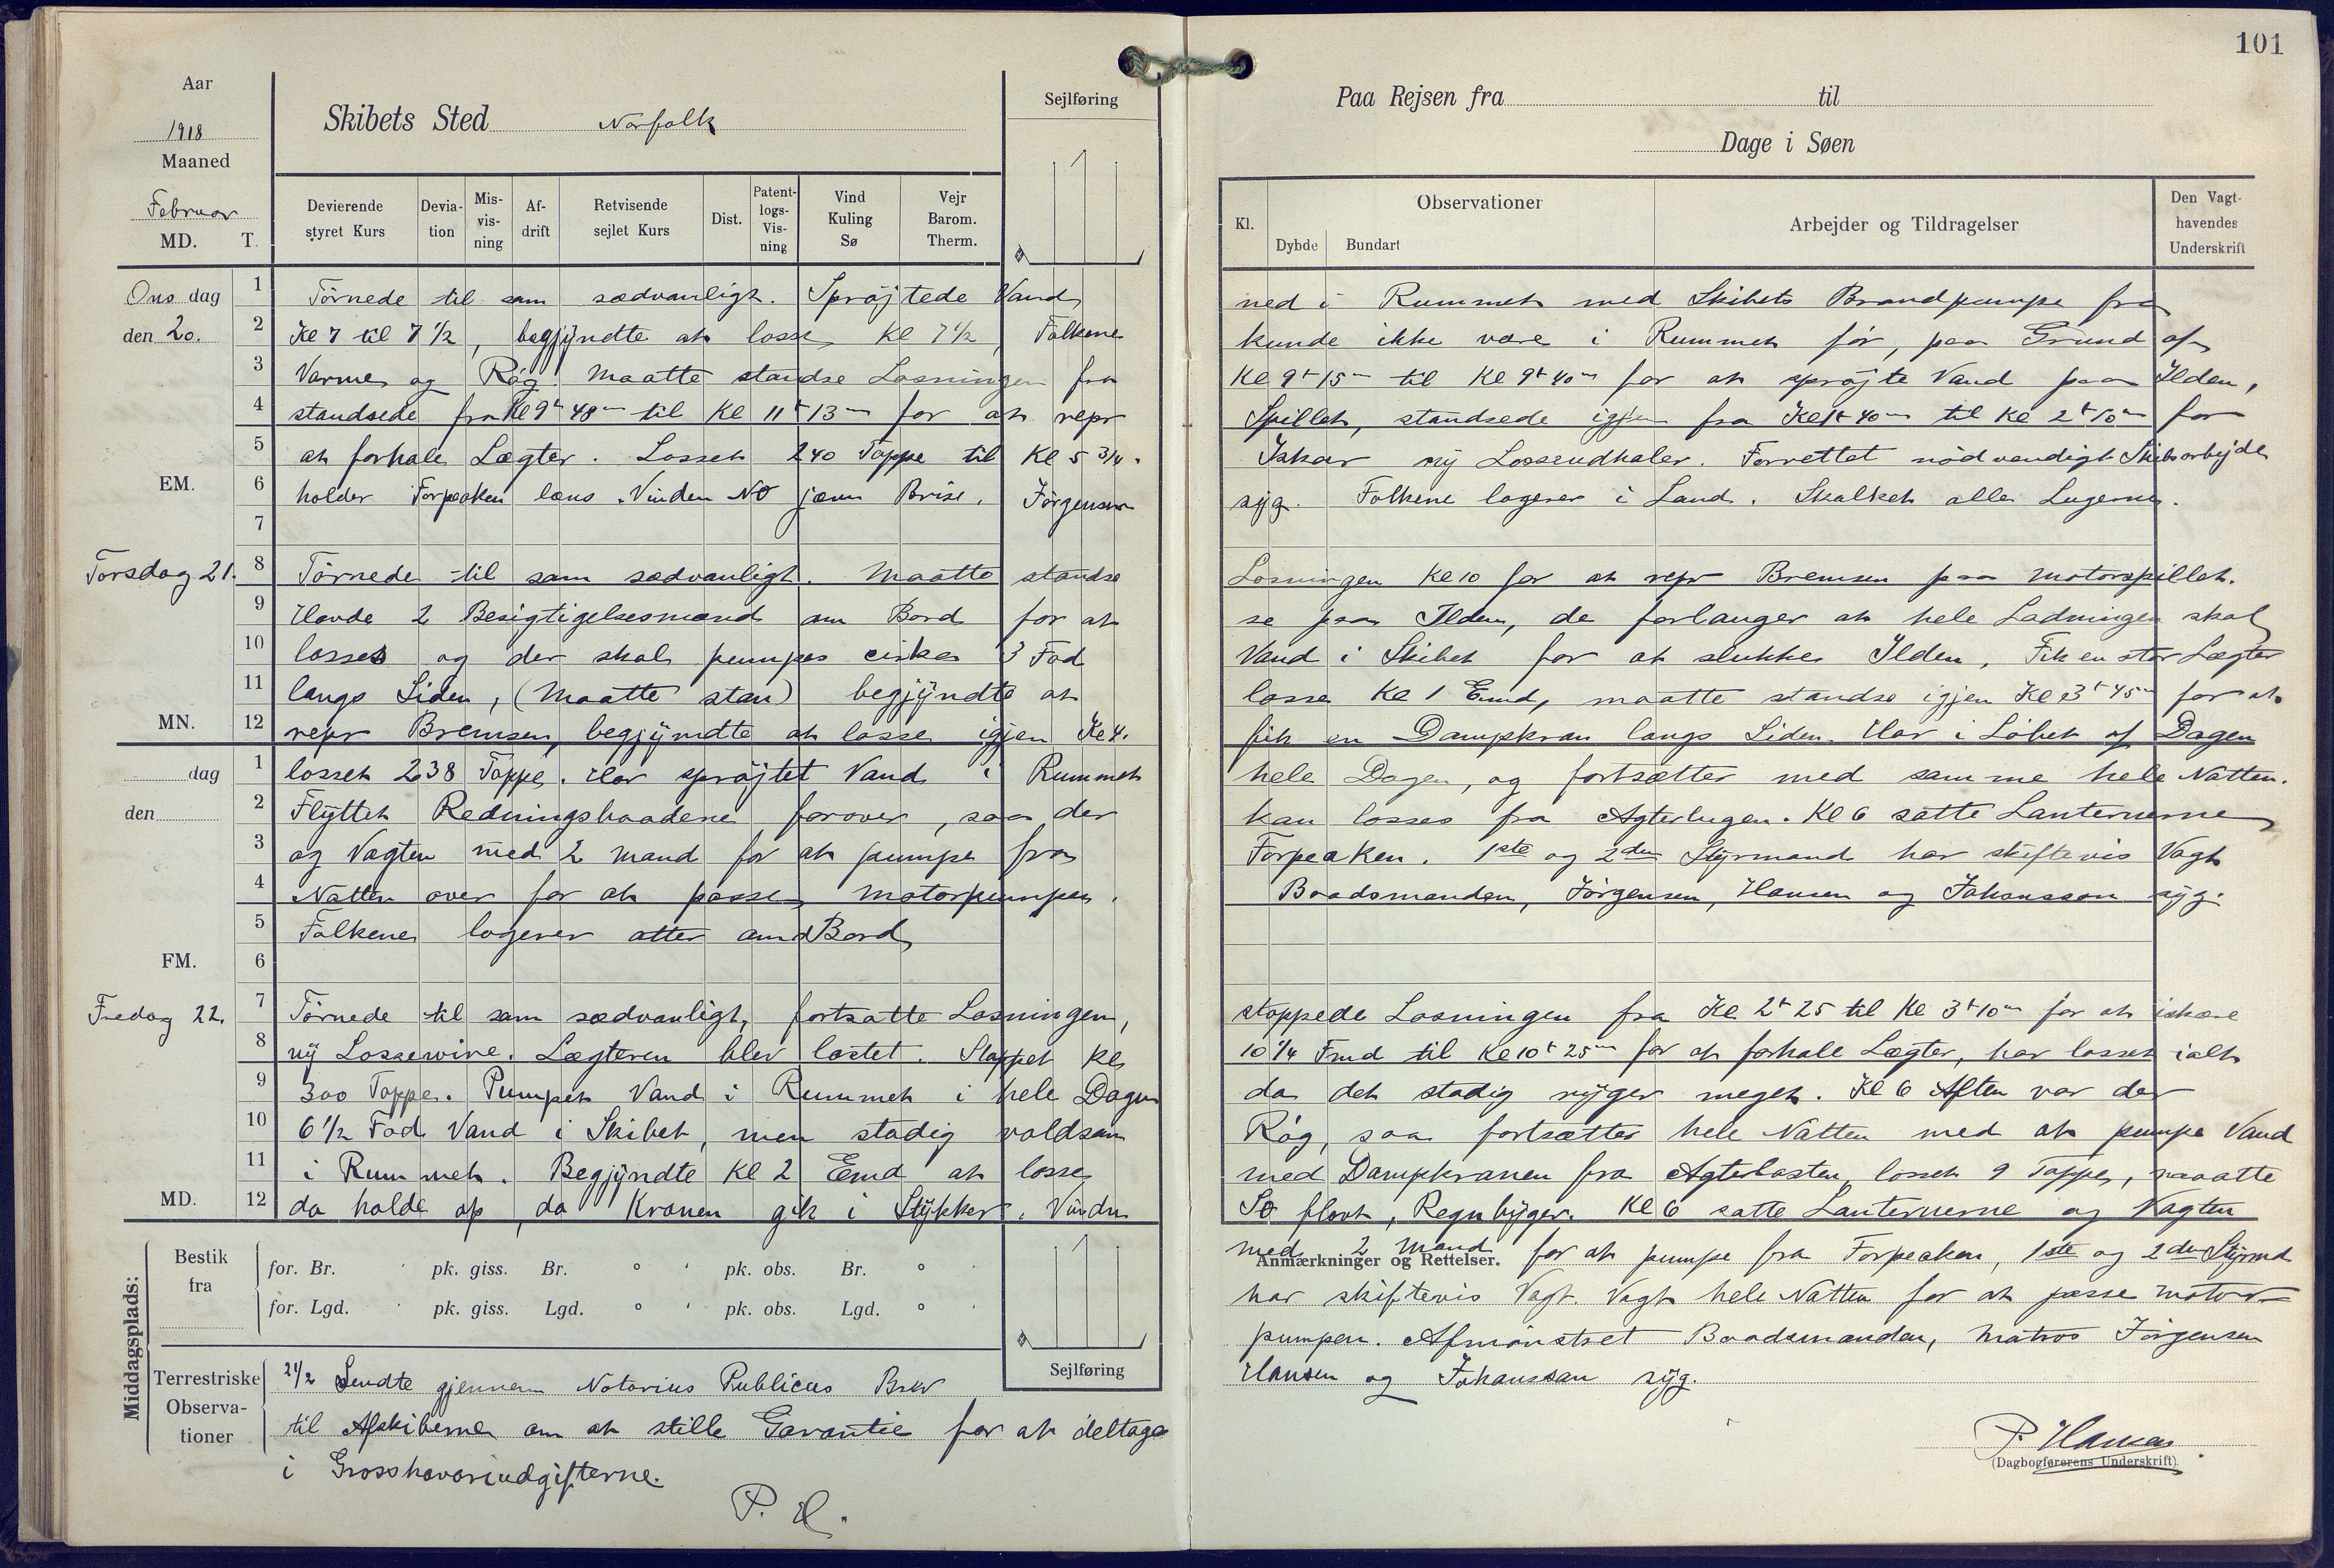 101
Aar
1918
Maaned
Februar
MD. T.
Skibets Sted Norfolk
Sejlføring
Paa Rejsen fra til
Dage i Søen
Devierende styret Kurs
Devia- tion
Mis- vis- ning
Af- drift
Retvisende sejlet Kurs
Dist.
Patent- logs- Vis- ning
Vind Kuling Sø
Vejr Barom. Therm.
Kl.
Observationer
Dybde Bundart
Arbejder og Tildragelser
Den Vagt- havendes Underskrift
Ons dag 1 Törnede til som sædvanligt. Spröjtede Vand ned i Rummet med Skibets Brandpumpe fra
den 20. 2 Kl 7 til 7 1/2, begjÿndte at losse Kl 7 1/2, Folkene kunde ikke være i Rummet för, paa Grund af
3 Varme og Rög. Maatte standse Losningen fra Kl 9t 15m til Kl 9t 40m for at spröjte Vand paa Ilden,
4 standsede fra Kl 9t 48m til Kl 11t 13m for at repr Spillet, standsede igjen fra Kl 1t 40m til Kl 2t 10m for
5 at forhale Lægter. Losset 240 Toppe til Kl 5 3/4. Iskar nÿ Lossendhaler. Forrettet nödvendigt Skibsarbejde
EM. 6 holder Forpeaken læns. Vinden NO jævn Brise. Jörgensen sÿg. Folkene logerer i Land. Skalket alle Lugerne.
7
Torsdag 21. 8 Törnede til som sædvanligt. Maatte standse Losningen Kl 10 for at repr Bremsen paa Motorspillet.
9 Havde 2 Besigtigelsesmænd om Bord for at se paa Ilden, de forlanger at hele Ladningen skal
10 losses og der skal pumpes cirka 3 Fod Vand i Skibet for at slukke Ilden, Fik en stor Lægter
11 langs Siden, (Maatte stan) begjÿndte at losse Kl 1 Emd, maatte standse igjen Kl 3t 45m for at
MN. 12 repr Bremsen, begjÿndte at losse igjen Kl 4. fik en Dampkran langs Siden. Har i Löbet af Dagen
dag 1 losset 238 Toppe. Har spröjtet Vand i Rummet hele Dagen, og fortsætter med samme hele Natten.
den 2 Flÿttet Redningsbaadene forover, saa der kan losses fra Agterlugen. Kl 6 satte Lanternerne
3 og Vagten med 2 Mand for at pumpe fra Forpeaken. 1ste og 2den Stÿrmand har skiftevis Vagt
4 Natten over for at passe Motorpumpen. Baadsmanden, Jörgensen, Hansen og Johansson sÿg.
5 Folkene logerer atter om Bord
FM. 6
Fredag 22. 7 Törnede til som sædvanligt, fortsatte Losningen, stoppede Losningen fra Kl 2t 25 til Kl 3t 10m for at iskære
8 nÿ Lossewire. Lægteren blev lastet. Stoppet Kl 10 1/4 Fmd til Kl 10t 25m for at forhale Lægter, har losset ialt
9 300 Toppe. Pumpet Vand i Rummet i hele Dagen da det stadig rÿger meget. Kl 6 Aften var der
10 6 1/2 Fod Vand i Skibet, men stadig voldsom Rög, saa fortsætter hele Natten med at pumpe Vand
11 i Rummet. Begjÿndte Kl 2 Emd at losse med Dampkranen fra Agterlasten, losset 9 Toppe, maatte
MD. 12 da holde op, da Kranen gik i Stÿkker. Vinden SO flovt, Regnbÿger. Kl 6 satte Lanternerne og Vagten
Anmærkninger og Rettelser.
med 2 Mand for at pumpe fra Forpeaken, 1ste og 2den Stÿrmd
har skiftevis Vagt. Vagt hele Natten for at passe Motor-
pumpen. Afmönstret Baadsmanden, Matros Jörgensen
Hansen og Johansson sÿg.
P. Hansen
(Dagbogførerens Underskrift)
Middagsplads:
Bestik fra
for. Br. ' pk. giss. Br. ° ' pk. obs. Br. ° '
for. Lgd. ' pk. giss. Lgd. ° ' pk. obs. Lgd. ° '
Sejlføring
Terrestriske Observa- tioner
21/2 Sendte gjennem Notarius Publicus Brev
til Afskiberne om at stille Garantie for at deltage
i Grosshavariudgifterne.
P. H.